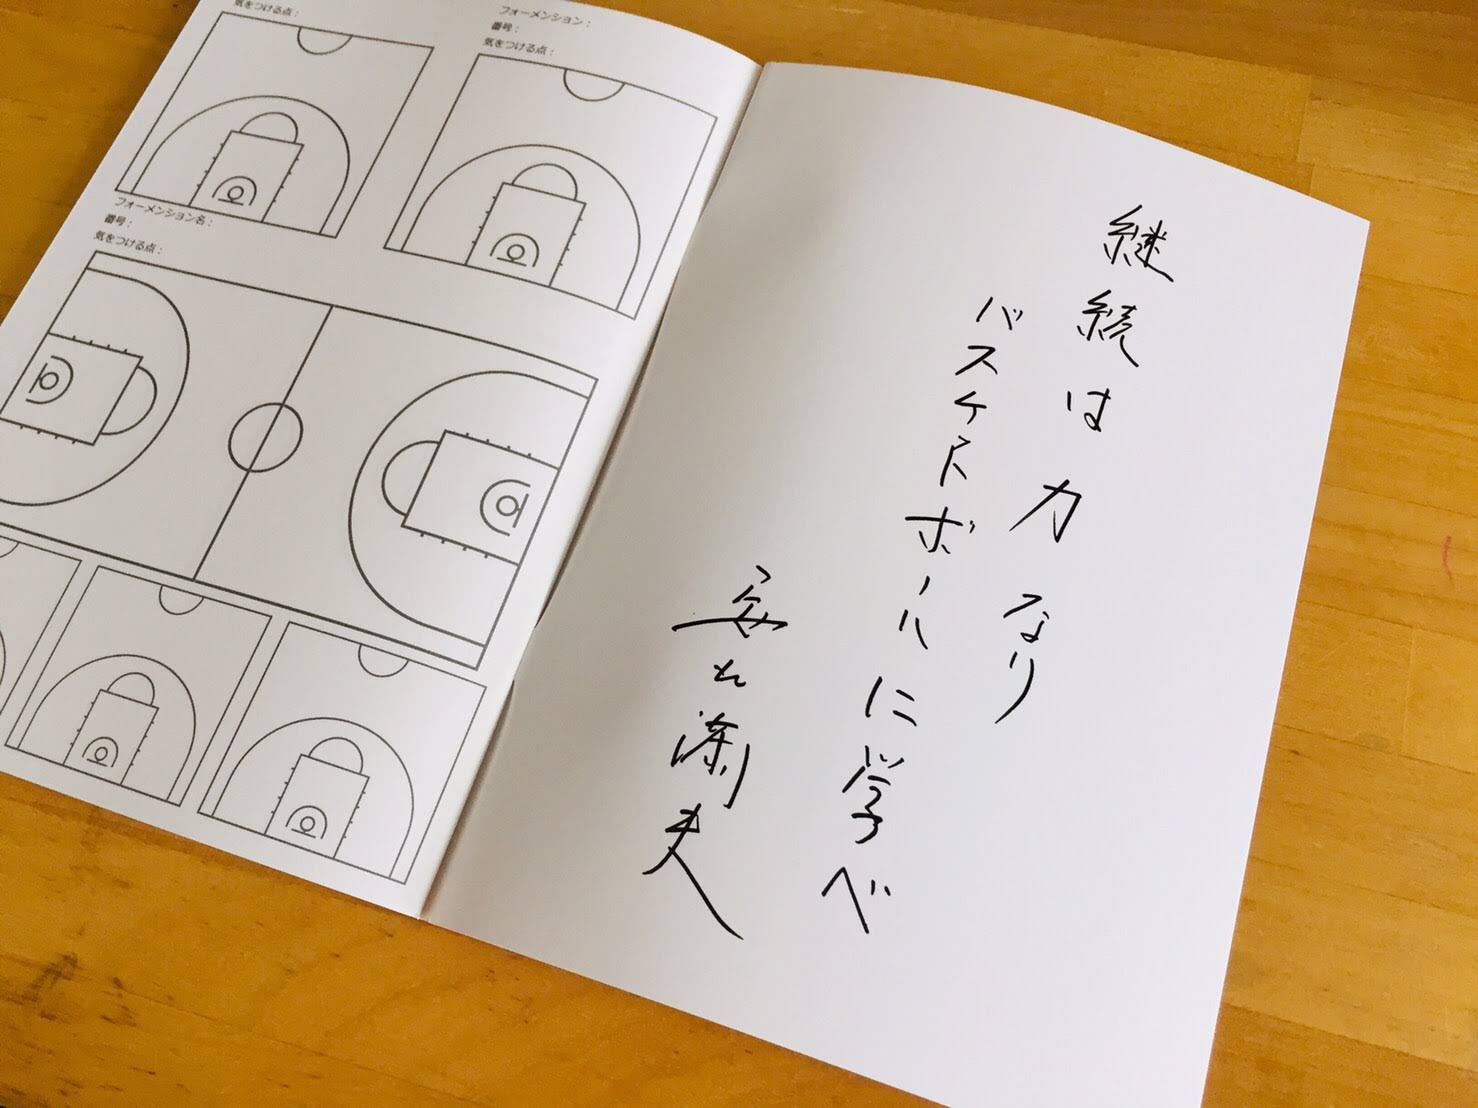 気をつける点：
フォーメンション：
番号：
気をつける点：
フォーメンション名：
番号：
気をつける点：
継続は力なり
バスケットボールに学べ